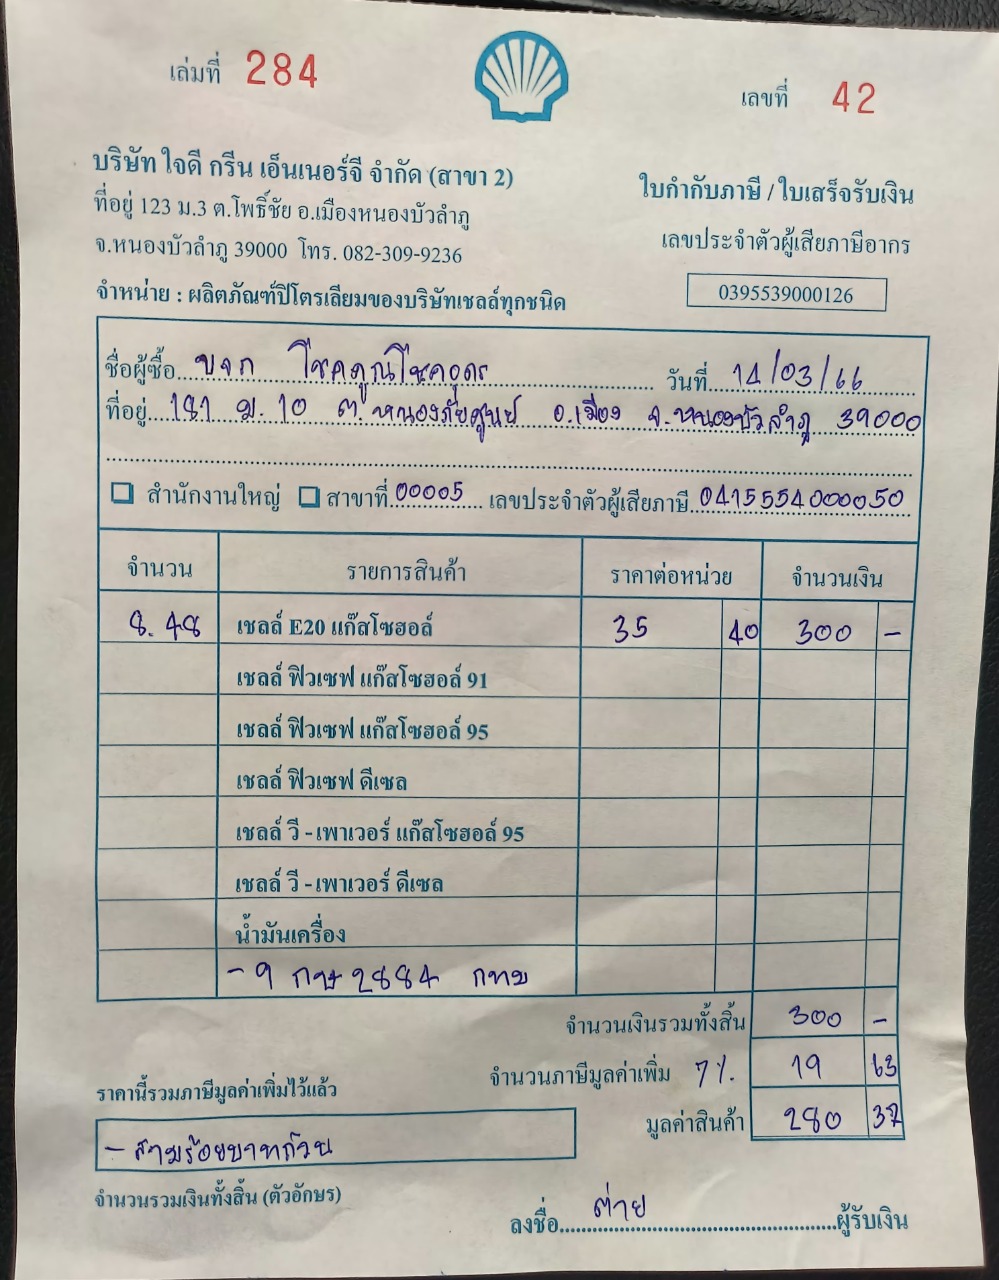 เล่มที่ 284
เลขที่ 42
บริษัท ใจดี กรีน เอ็นเนอร์จี จำกัด (สาขา 2)
ที่อยู่ 123 ม.3 ต.โพธิ์ชัย อ.เมืองหนองบัวลำภู
จ.หนองบัวลำภู 39000 โทร. 082-309-9236
จำหน่าย : ผลิตภัณฑ์ปิโตรเลียมของบริษัทเชลล์ทุกชนิด
ใบกำกับภาษี / ใบเสร็จรับเงิน
เลขประจำตัวผู้เสียภาษีอากร
0395539000126
ชื่อผู้ซื้อ บจก โชคคูณโชคอุดร วันที่ 14/03/66
ที่อยู่ 181 ม.10 ต.หนองภัยศูนย์ อ.เมือง จ.หนองบัวลำภู 39000
สำนักงานใหญ่ สาขาที่ 00005 เลขประจำตัวผู้เสียภาษี 0415554000050
จำนวน รายการสินค้า ราคาต่อหน่วย จำนวนเงิน
8.48 เชลล์ E20 แก๊สโซฮอล์ 35 40 300 -
เชลล์ ฟิวเซฟ แก๊สโซฮอล์ 91
เชลล์ ฟิวเซฟ แก๊สโซฮอล์ 95
เชลล์ ฟิวเซฟ ดีเซล
เชลล์ วี - เพาเวอร์ แก๊สโซฮอล์ 95
เชลล์ วี - เพาเวอร์ ดีเซล
น้ำมันเครื่อง
- 9 กษ 2884 กทม
จำนวนเงินรวมทั้งสิ้น 300 -
จำนวนภาษีมูลค่าเพิ่ม 7%. 19 63
ราคานี้รวมภาษีมูลค่าเพิ่มไว้แล้ว
มูลค่าสินค้า 280 37
- สามร้อยบาทถ้วน
จำนวนรวมเงินทั้งสิ้น (ตัวอักษร)
ลงชื่อ ต่าย ผู้รับเงิน